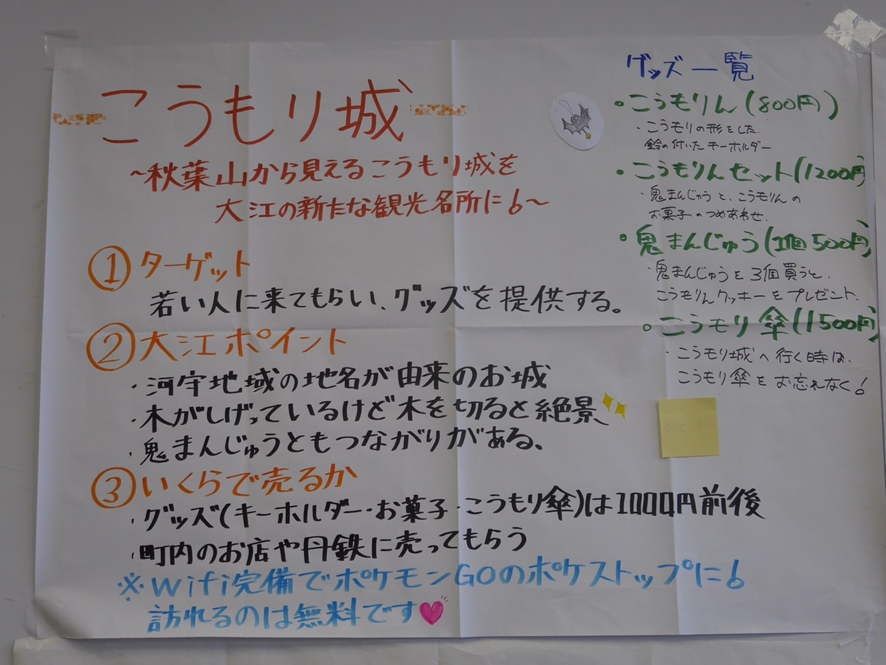 こうもり城
~秋葉山から見えるこうもり城を
大江の新たな観光名所に!~
① ターゲット
若い人に来てもらい、グッズを提供する。
② 大江ポイント
・河宇地域の地名が由来のお城
・木がしげっているけど木を切ると絶景
・鬼まんじゅうともつながりがある、
③ いくらで売るか
・グッズ(キーホルダー・お菓子・こうもり傘)は1000円前後
・町内のお店や丹鉄に売ってもらう
※Wifi完備でポケモンGOのポケストップに!
訪れるのは無料です
グッズ一覧
・こうもりん(800円)
・こうモリの形をした
鈴の付いたキーホルダー
・こうもりんセット(1200円)
・鬼まんじゅうと、こうモリんの
お菓子のつめあわせ.
・鬼まんじゅう(1個500円)
・鬼まんじゅうを3個買うと、
こうもりんクッキーをプレゼント.
・こうモリ傘(1500円)
・こうモリ城へ行く時は、
こうモリ傘をお忘れなく!